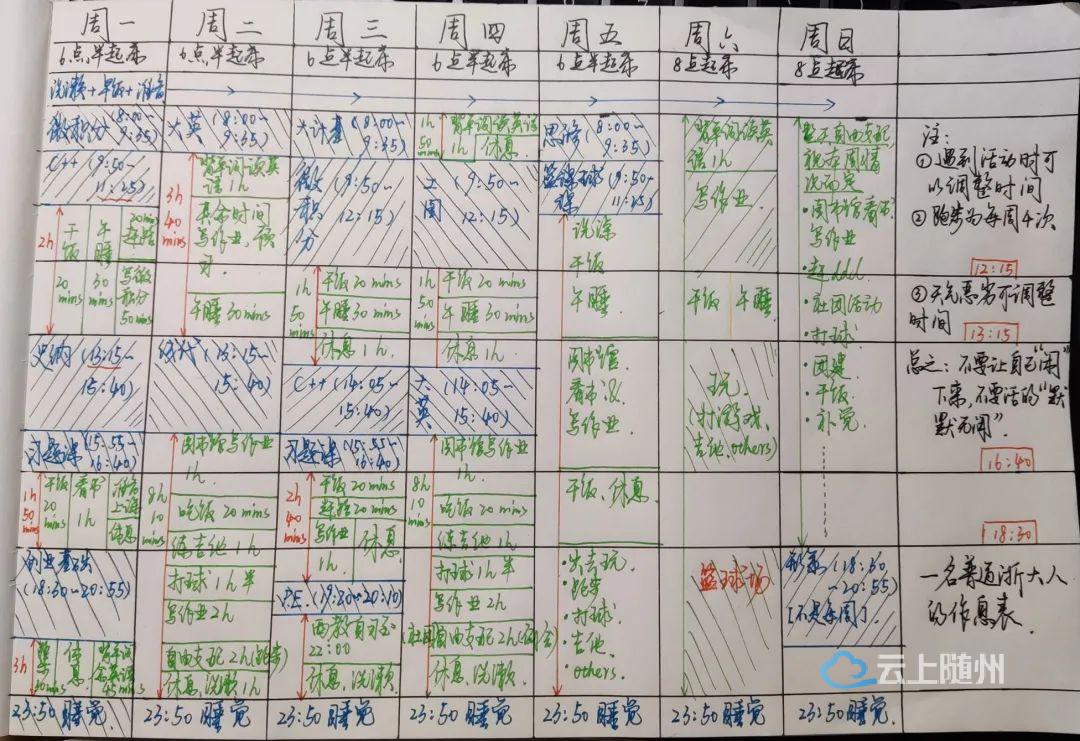 周一 周二 周三 周四 周五 周六 周日
6点半起床 6点半起床 6点半起床 6点半起床 6点半起床 8点起床 8点起床
洗漱+早饭+准备
微积分(8:00~
9:35)
C++(9:50~
11:25)
2h
干饭
20
mins
午睡
30
mins
20mins
写微
积分
50mins
史纲(13:15~
15:40)
习题课(15:55~
16:40)
1h
50
mins
干饭
20
mins
看书
1h
准备
上课
休息
创业基础
(18:30~20:55)
3h
跑步
休息
背单词
45mins
23:50睡觉
大英(8:00~
9:35)
3h
40
mins
背单词读英
语1h
其余时间
写作业,预
习.
午睡30mins
线代(13:15~
15:40)
8h
10
mins
图书馆写作业
1h
吃饭20mins
练吉他1h
打球1h半
写作业2h
自由支配2h(跑步)
休息,洗漱1h
23:50睡觉
大计基(8:00~
9:35)
微积分(9:50~
12:15)
1h
50
mins
干饭20mins
午睡30mins
休息1h.
C++(14:05~
15:40)
习题课(15:55~
16:40)
2h
40
mins
干饭20mins
20mins
写作业
1h.
休息
PE.(19:20~20:10)
西教自习至
22:00
休息,洗漱.
23:50睡觉
1h
50
mins
背单词读英语
1h
休息
工图(9:50~
12:15)
1h
50
mins
干饭20mins
午睡30mins
休息1h.
大英(14:05~
15:40)
8h
10
mins
图书馆写作业
1h.
吃饭20mins
练吉他1h
打球1h半
写作业2h
自由支配2h
休息,洗漱
23:50睡觉
思修(8:00~
9:35)
篮球课(9:50~
11:25)
洗澡
干饭
午睡
图书馆
看书以
写作业
干饭、休息
·出去玩.
·跑步
·打球.
·吉他.
·others.
23:50睡觉
背单词读英
语1h
写作业
干饭 午睡
玩.
(打游戏、
吉他、others)
篮球场
23:50睡觉
自由支配,
视本周情
况而定
·图书馆看书
写作业
·社团活动
·打球.
·团建
·干饭.
·补觉.
形策(18:30
~20:55)
[不是每周].
23:50睡觉.
注:
①遇到活动时可
以调整时间
②跑步为每周4次
12:15
③天气恶劣可调整
时间
13:15
总之:不要让自己“闲”
下来,不要活的“默
默无闻”.
16:40
18:30
一名普通浙大人
的作息表.
云上随州